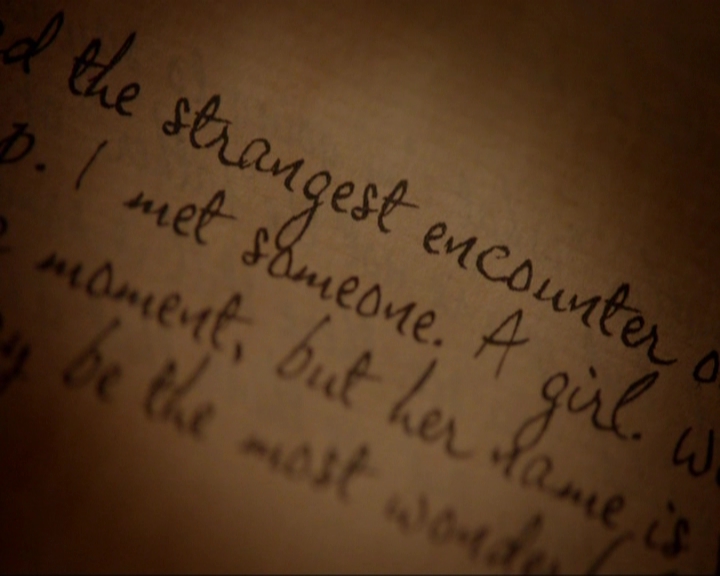 the strangest encounter
p. I met someone. A girl.
moment, but her name is
be the most